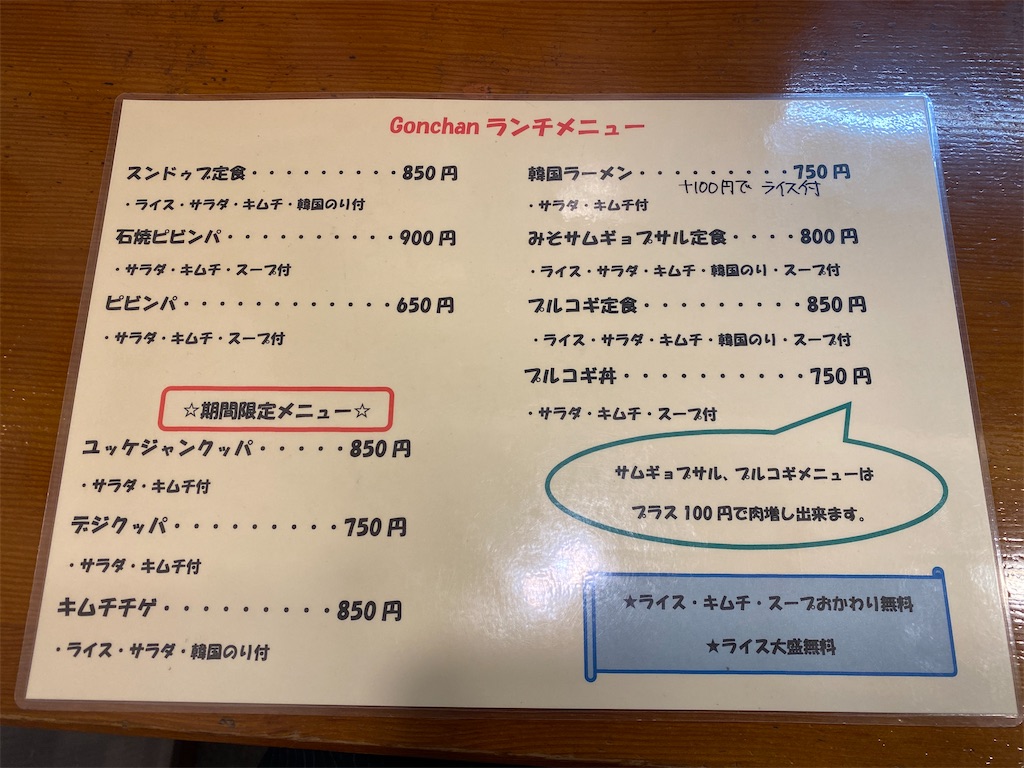 Gonchan ランチメニュー
スンドゥブ定食・・・・・・・・・850円
・ライス・サラダ・キムチ・韓国のり付
石焼ピビンパ・・・・・・・・・・900円
・サラダ・キムチ・スープ付
ピビンパ・・・・・・・・・・・・・650円
・サラダ・キムチ・スープ付
☆期間限定メニュー☆
ユッケジャンクッパ・・・・・850円
・サラダ・キムチ付
デジクッパ・・・・・・・・・750円
・サラダ・キムチ付
キムチチゲ・・・・・・・・・850円
・ライス・サラダ・韓国のり付
韓国ラーメン・・・・・・・・・750円
+100円で ライス付
・サラダ・キムチ付
みそサムギョプサル定食・・・・800円
・ライス・サラダ・キムチ・韓国のり・スープ付
プルコギ定食・・・・・・・・・850円
・ライス・サラダ・キムチ・韓国のり・スープ付
プルコギ丼・・・・・・・・・・750円
・サラダ・キムチ・スープ付
サムギョプサル、プルコギメニューは
プラス100円で肉増し出来ます。
★ライス・キムチ・スープおかわり無料
★ライス大盛無料